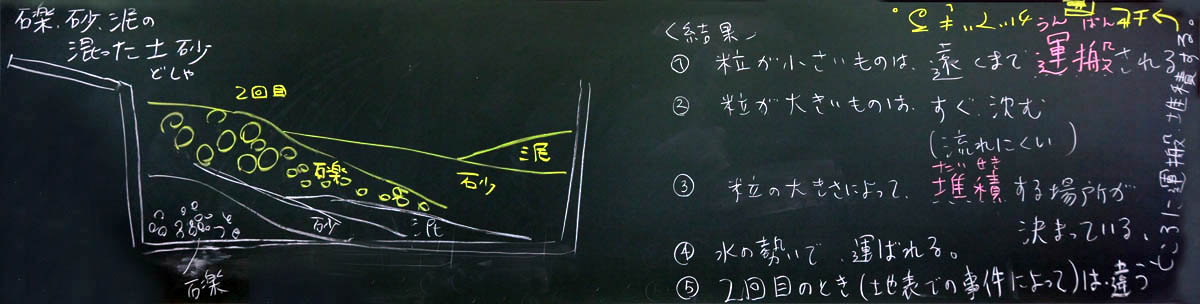 礫、砂、泥の
混った土砂
どしゃ
2回目
礫
砂
泥
砂
泥
礫
<結果>
① 粒が小さいものは、遠くまで運搬される
うんぱん
② 粒が大きいものは、すぐ沈む
(流れにくい)
③ 粒の大きさによって、堆積する場所が
たいせき
決まっている、
④ 水の勢いで、運ばれる。
⑤ 2回目のとき(地表での事件によって)は、違う
ところに運搬、堆積する。